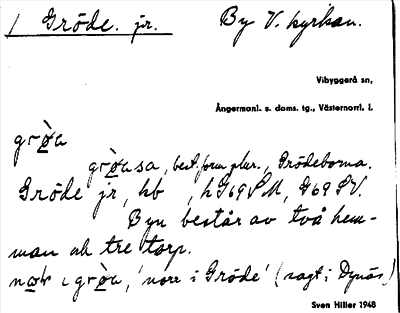 1 Gröde. jr. By V. kyrkan.
Vibyggerå sn,
Ångermanl. s. doms. tg., Västernorrl. l.
grö̀a
grö̀asa, best. form plur., Grödeborna.
Gröde jr, hb , hG69SM, G69SV.
Byn består av två hem-
man och tre torp.
i grö̀a, 'norr i Gröde' (sagt i Dynäs)
Sven Hiller 1948